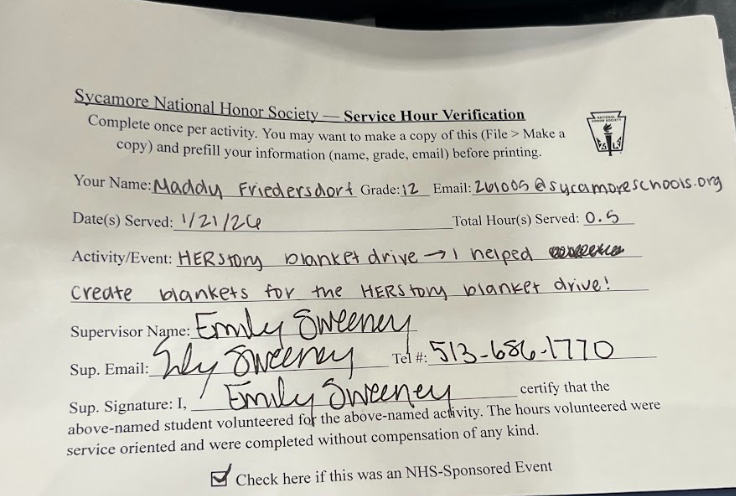 Sycamore National Honor Society — Service Hour Verification
Complete once per activity. You may want to make a copy of this (File > Make a
copy) and prefill your information (name, grade, email) before printing.
Your Name: Maddy Friedersdorf Grade: 12 Email: 261005@sycamoreschools.org
Date(s) Served: 1/21/26 Total Hour(s) Served: 0.5
Activity/Event: HERstory blanket drive → I helped
create blankets for the HERstory blanket drive!
Supervisor Name: Emily Sweeney
Sup. Email: Emily Sweeney Tel #: 513-686-1770
Sup. Signature: I, Emily Sweeney certify that the
above-named student volunteered for the above-named activity. The hours volunteered were
service oriented and were completed without compensation of any kind.
☑ Check here if this was an NHS-Sponsored Event